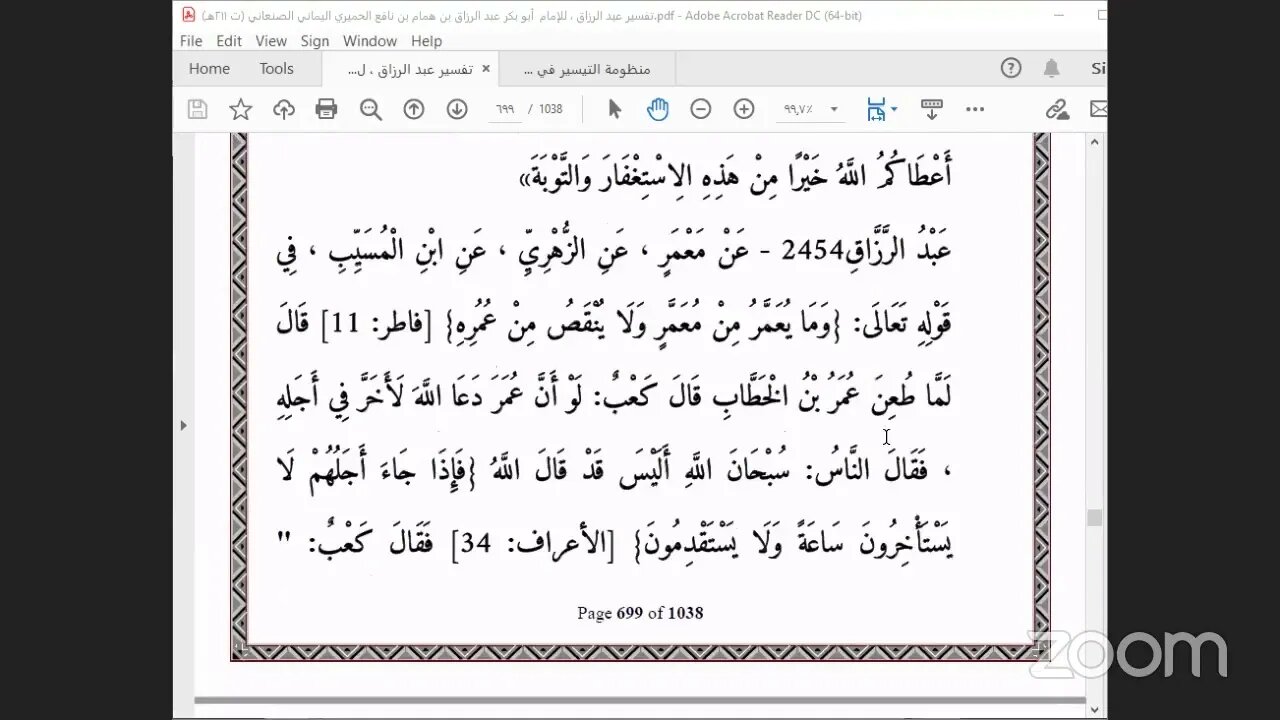 تفسير عبد الرزاق ، للإمام أبو بكر عبد الرزاق بن همام بن نافع الحميري اليماني الصنعاني (ت ٢١١هـ).pdf - Adobe Acrobat Reader DC (64-bit)
File Edit View Sign Window Help
Home Tools تفسير عبد الرزاق ، ل... × منظومة التيسير في ...
٦٩٩ / 1038 ٩٩,٧٪
أَعْطَاكُمُ اللَّهُ خَيْرًا مِنْ هَذِهِ الِاسْتِغْفَارَ وَالتَّوْبَةَ»
عَبْدُ الرَّزَّاقِ2454 - عَنْ مَعْمَرٍ ، عَنِ الزُّهْرِيِّ ، عَنِ ابْنِ الْمُسَيِّبِ ، فِي
قَوْلِهِ تَعَالَى: {وَمَا يُعَمَّرُ مِنْ مُعَمَّرٍ وَلَا يُنْقَصُ مِنْ عُمُرِهِ} [فاطر: 11] قَالَ
لَمَّا طُعِنَ عُمَرُ بْنُ الْخَطَّابِ قَالَ كَعْبٌ: لَوْ أَنَّ عُمَرَ دَعَا اللَّهَ لَأَخَّرَ فِي أَجَلِهِ
، فَقَالَ النَّاسُ: سُبْحَانَ اللَّهِ أَلَيْسَ قَدْ قَالَ اللَّهُ {فَإِذَا جَاءَ أَجَلُهُمْ لَا
يَسْتَأْخِرُونَ سَاعَةً وَلَا يَسْتَقْدِمُونَ} [الأعراف: 34] فَقَالَ كَعْبٌ: "
Page 699 of 1038
zoom